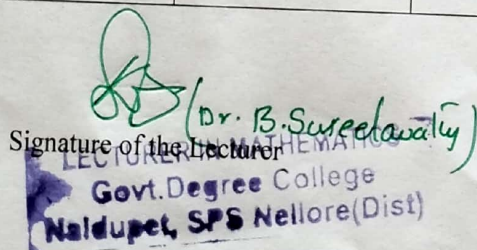 (Dr. B. Sureelavathy)
Signature of the Lecturer
LECTURER IN MATHEMATICS
Govt.Degree College
Naidupet, SPS Nellore(Dist)